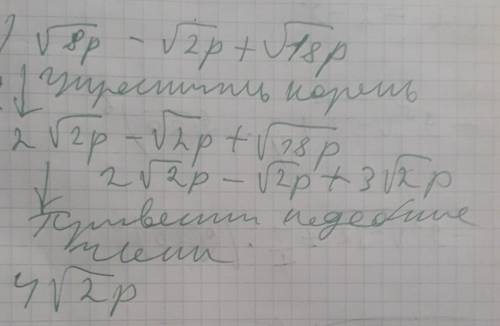 ) √8p - √2p + √18p
↓ Упростить корень
2√2p - √2p + √18p
↓ 2√2p - √2p + 3√2p
Привести подобные
члены
4√2p